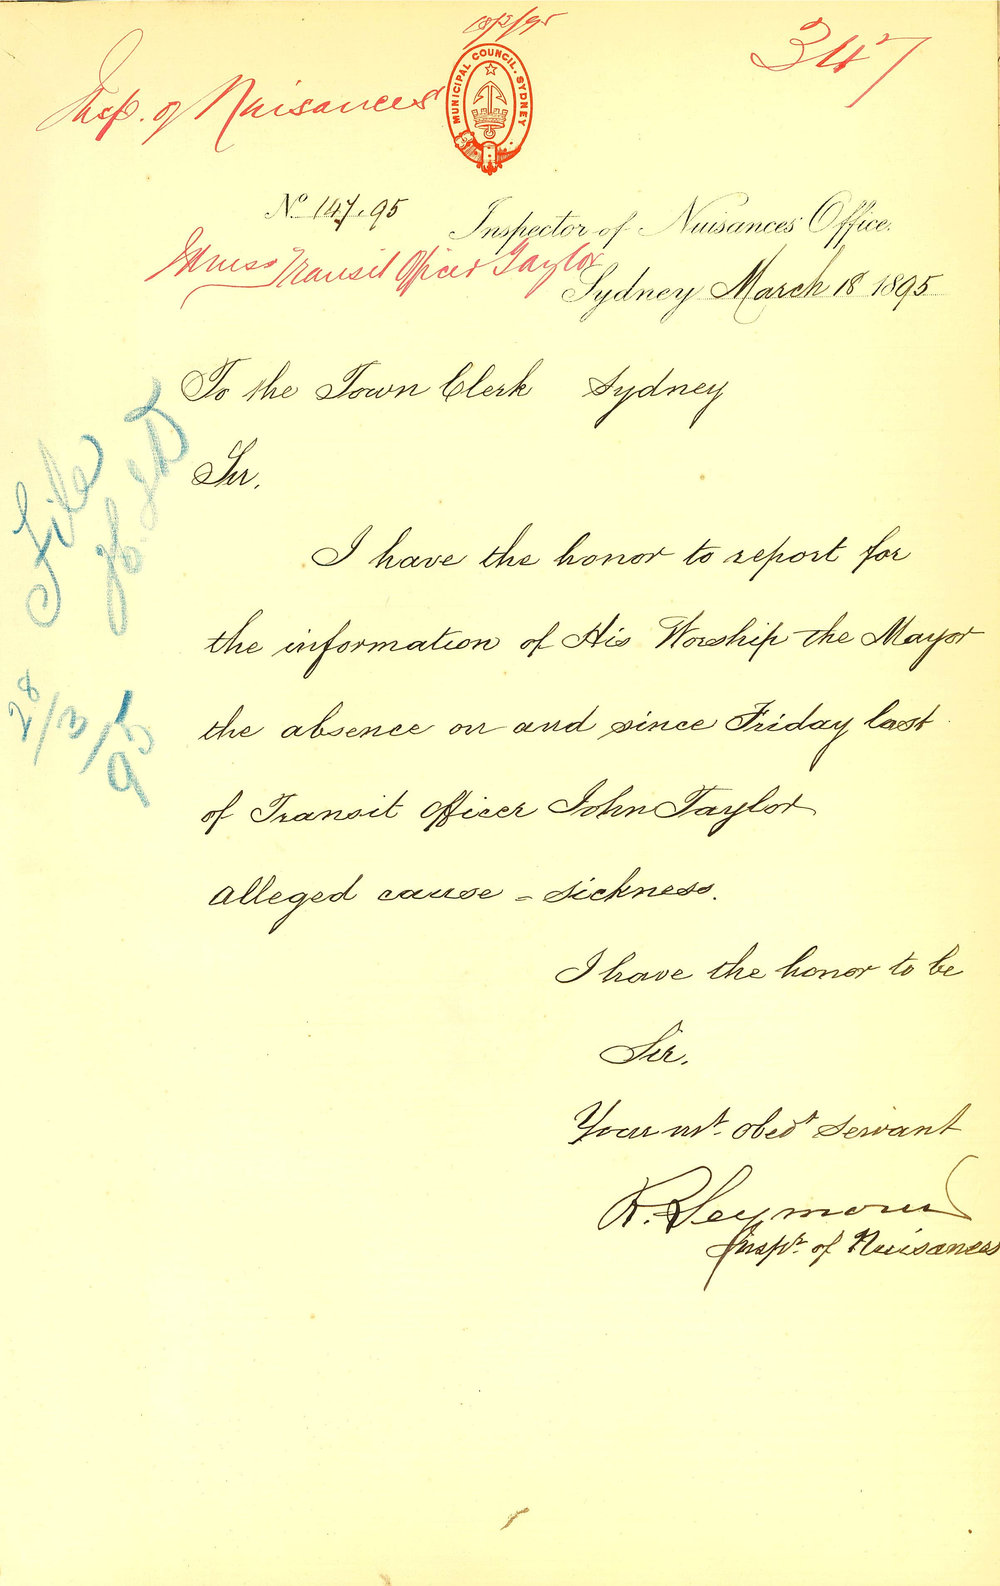 18/3/95
347
Insp. of Nuisances
MUNICIPAL COUNCIL. SYDNEY
No 147.95
Inspector of Nuisances Office.
Illness Transit Officer Taylor
Sydney March 18 1895
To the Town Clerk Sydney
Sir,
I have the honor to report for
the information of His Worship the Mayor
the absence on and since Friday last
of Transit Officer John Taylor
alleged cause - sickness.
I have the honor to be
Sir.
Your mt. obedt servant
R. Seymour
Inspr. of Nuisances
File
28/3/95